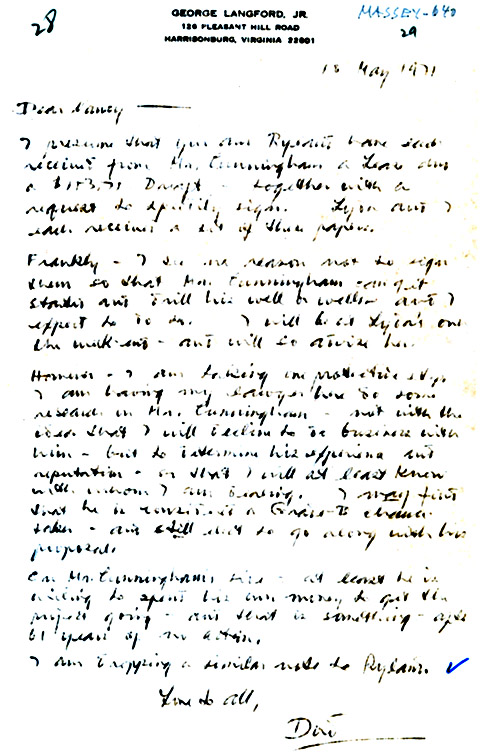 28
GEORGE LANGFORD, JR.
126 PLEASANT HILL ROAD
HARRISONBURG, VIRGINIA 22801
MASSEY-640
29
18 May 1971
Dear Nancy
I presume that you and have each
received from Mr. Cunningham a Lease and
a Draft - together with a
request to specify sign. and I
each received a set of these papers.
Frankly - I see no reason not to sign
them so that Mr. Cunningham can get
started and drill his well or wells - and I
expect to do so. I will be at one
week-end - and will so advise her.
However - I am taking one protective step
I am having my lawyer here do some
research on Mr. Cunningham - not with the
idea that I will decline to do business with
him - but to determine his experience and
reputation - so that I will at least know
with whom I am dealing. I may find
that he is considered a Grade-B chance
taker - and still elect to go along with his
proposals
On Mr. Cunningham's side - at least he is
willing to spend his own money to get the
project going - and that is something - after
61 years of no action.
I am dropping a similar note to
Love to all,